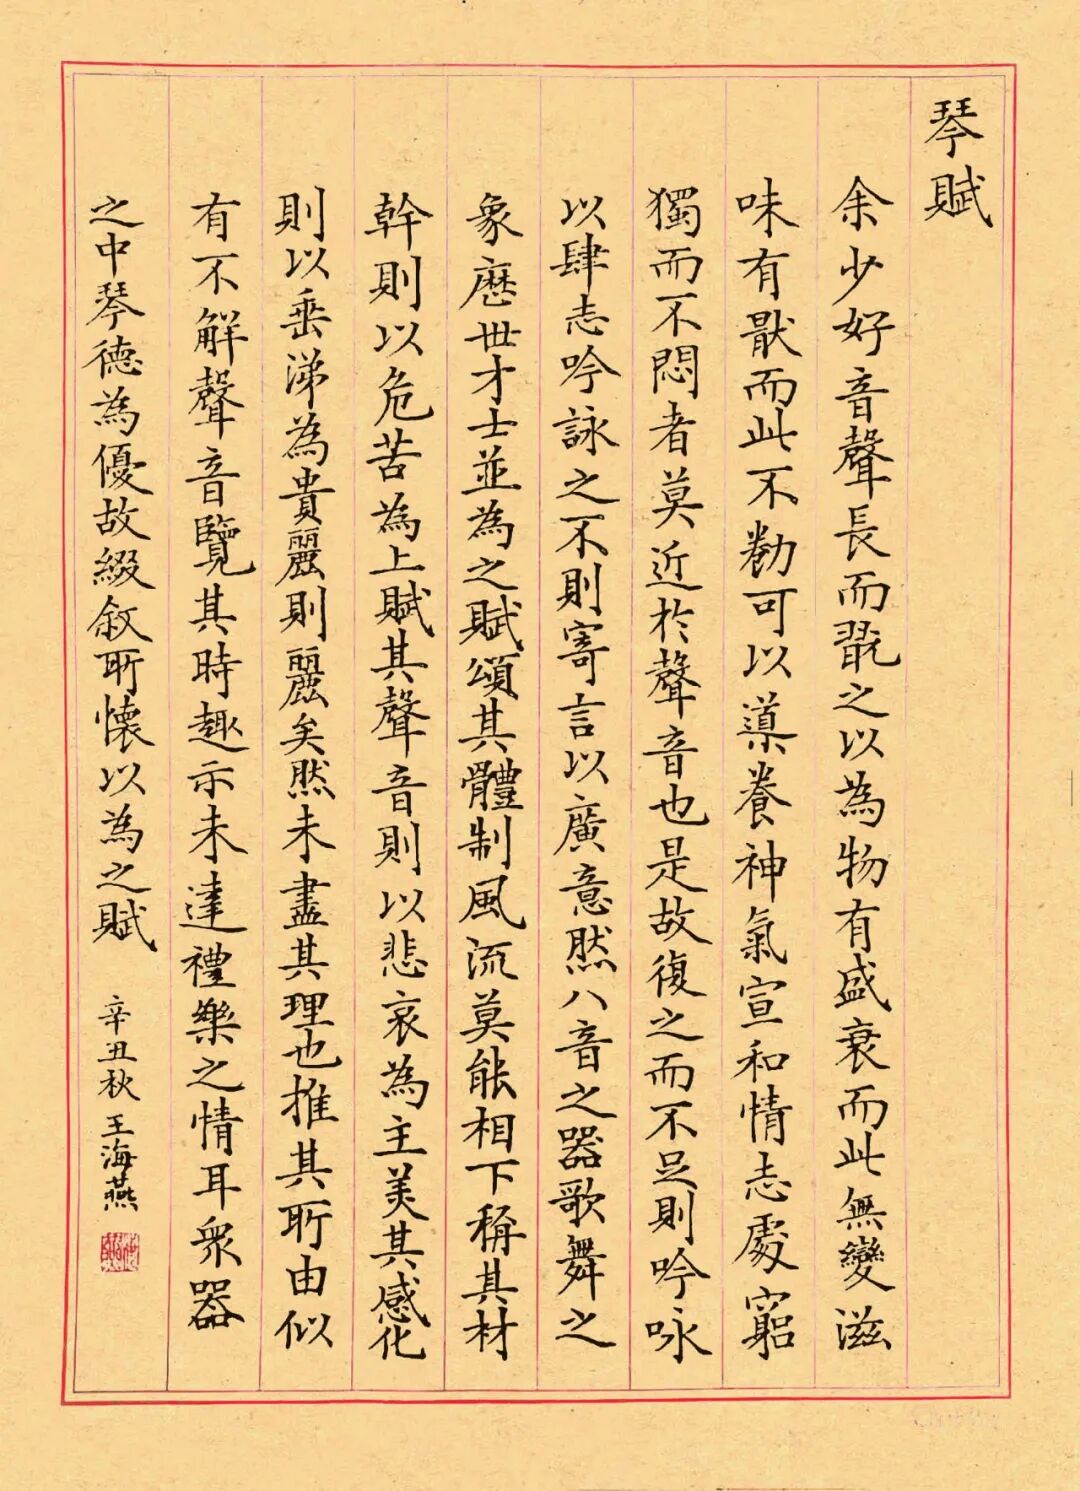 琴賦
余少好音聲長而翫之以為物有盛衰而此無變滋
味有猒而此不勌可以導養神氣宣和情志處窮
獨而不悶者莫近於聲音也是故復之而不足則吟咏
以肆志吟詠之不足則寄言以廣意然八音之器歌舞之
象歷世才士並為之賦頌其體制風流莫能相下稱其材
幹則以危苦為上賦其聲音則以悲哀為主美其感化
則以垂涕為貴麗則麗矣然未盡其理也推其所由似
有不解聲音覽其時趣示未達禮樂之情耳衆器
之中琴德為優故綴敘所懷以為之賦
辛丑秋 王海燕